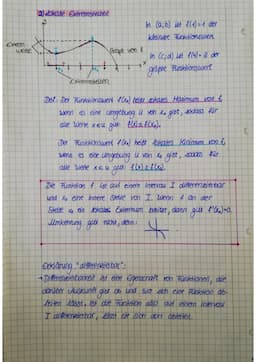 a) lokale Extremstellen
Extrem-
werte
Graph von f
Extremstellen
In (a,b) ist f(1)=1 der
kleinste Funktionswert
In (c,d) ist f(4)=3 der
größte Funktionswert
Def: Der Funktionswert f(x₀) heißt lokales Maximum von f,
wenn es eine Umgebung U von x₀ gibt, sodass für
alle Werte x∈U gilt: f(x)≤f(x₀).
Der Funktionswert f(x₀) heißt lokales Minimum von f,
wenn es eine Umgebung U von x₀ gibt, sodass für
alle Werte x∈U gilt: f(x)≥f(x₀).
Die Funktion f ist auf einem Intervall I differenzierbar
und x₀ eine innere Stelle von I. Wenn f an der
Stelle x₀ ein lokales Extremum besitzt, dann gilt f'(x₀)=0.
Umkehrung gilt nicht, denn:
Erklärung "differenzierbar":
→ Differenzierbarkeit ist eine Eigenschaft von Funktionen, die
darüber Auskunft gibt ob und wo sich eine Funktion ab-
leiten lässt, ist die Funktion also auf einem Intervall
I differenzierbar, lässt sie sich dort ableiten.